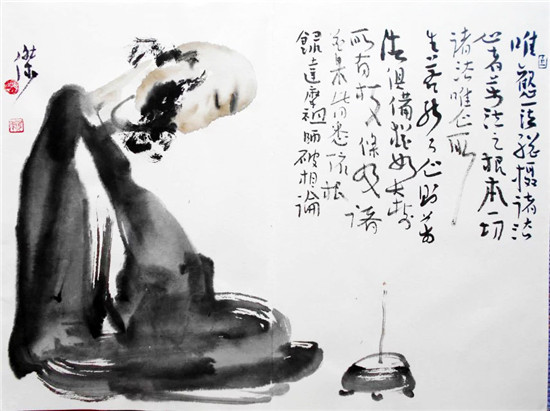 唯觀心一法總攝諸法
心者萬法之根本一切
諸法唯心所
生若能了心則萬
法俱備猶如大樹
所有枝條及諸
花果皆悉依根
録達摩祖師破相論